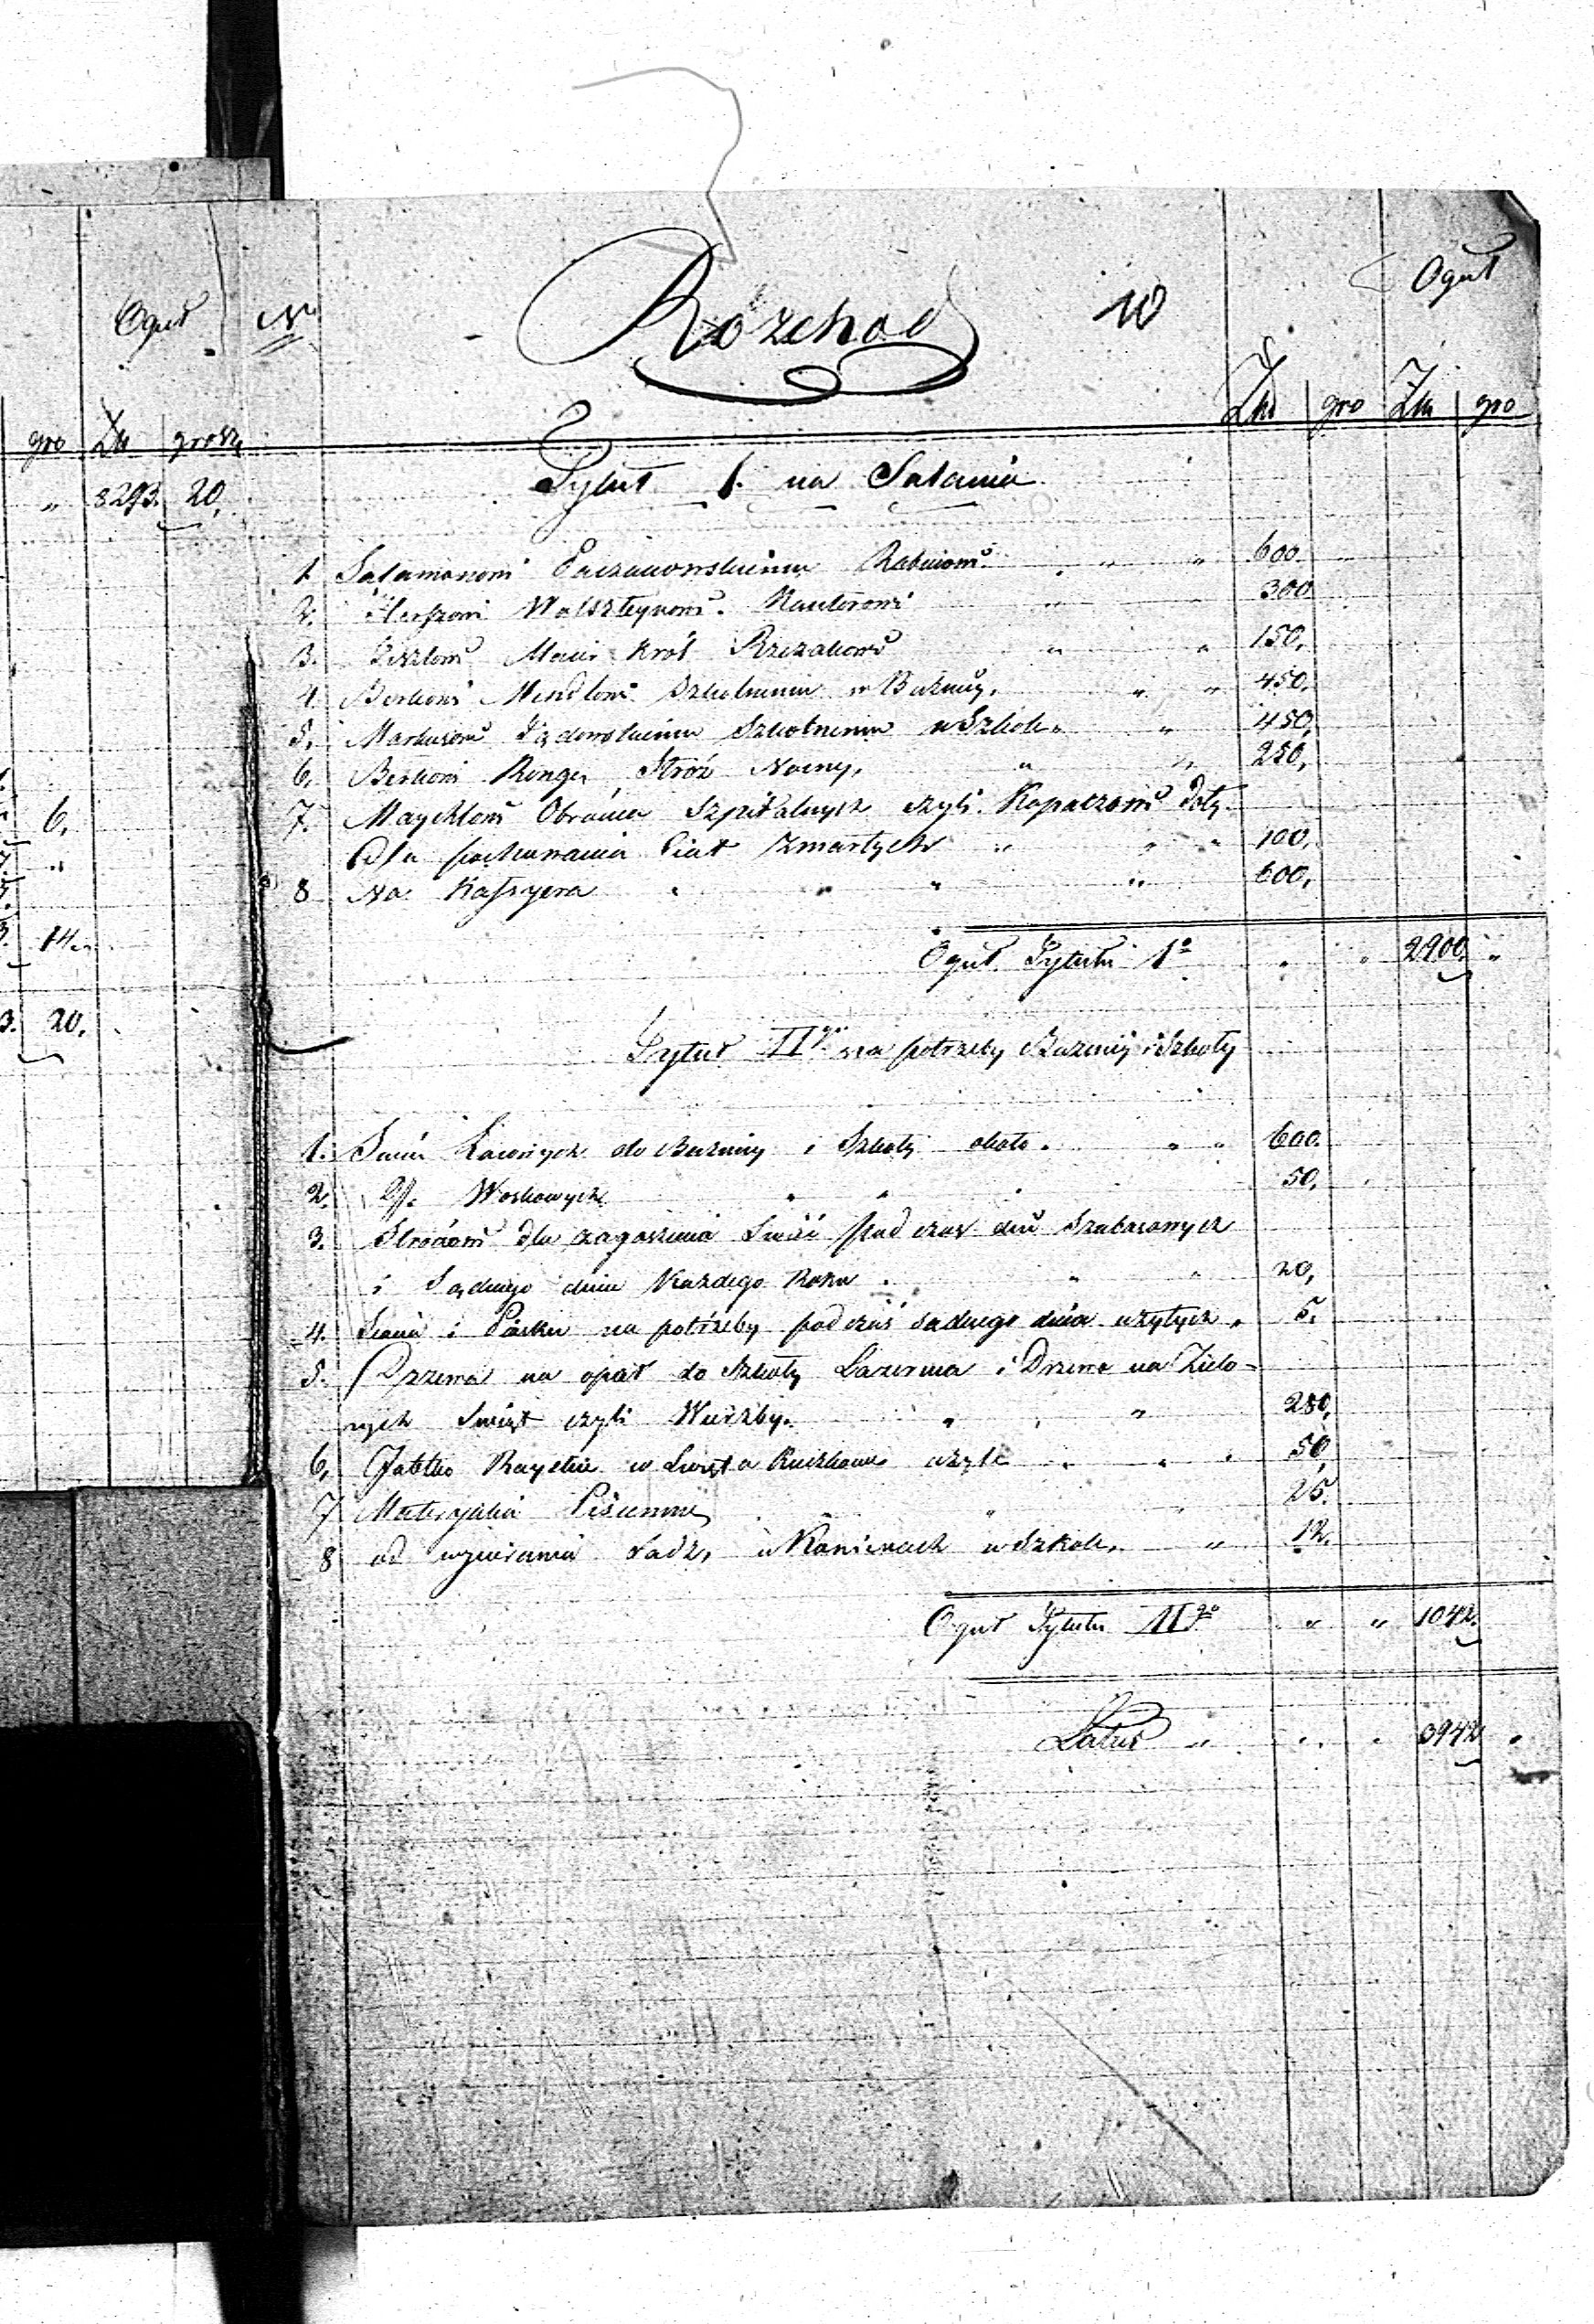 Ogół
gro Zł grosz
" 8293. 20.
6.
"
14.
20.
N
Rozchod
10
Oguł
Zł gro Zł gro
Tytuł 1. na Salaria
1. Salamonowi Rabinowi " " 600.
2. Herszowi Kantorowi " 300
3. Król Rzezakowi " " 150.
4. Berkowi Mendlowi Szkolnemu w Bużnicy. " " 450.
5. Markusowi Szkolnemu w Szkole " " 450.
6. Berkowi Stróż Nocny. " " 250.
7. Szpitalnych czyli Kopaczowi doły
dla pochowania Ciał Zmarłych " " " 100.
8 Na Kassyera " " " " 600.
Oguł Tytułu 1o " " 2900. "
Tytuł IIgi na potrzeby Bużnicy i Szkoły
1. Swiec Łoiowych do Bużnicy i Szkoły około " " 600.
2. Woskowych " " " 50.
3. Stróżowi dla zagaszenia Swiec pod czas dni Szabasowych
i Sądnego dnia Każdego Roku " " " 20.
4. Siana i Piasku na potrzeby podczas sadnego dnia użytych " 5.
5. Drzewa na opał do Szkoły i Drzewo na Zielo-
nych Swiąt czyli Wierzby. " " 280.
6. Jabłko Rayskie w Swięta Kuczkowe użyte " " " 50.
7 Materyalia Pisienne " " 25.
8 od sadzy w Kominach w Szkole. " 12.
Oguł Tytułu IIgo " " 1042.
Latus " " " 3942 "